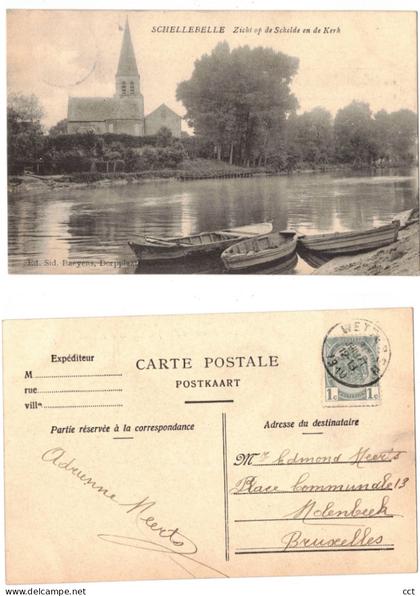 SCHELLEBELLE Zicht op de Schelde en de Kerk
Ed. Sid. Baeyens, Dorpplaats
Expéditeur
M
rue
ville
CARTE POSTALE
POSTKAART
WETTEREN
1c 1c
Partie réservée à la correspondance
Adresse du destinataire
Adrienne Meerts
Mr Edmond Meerts
Place Communale 13
Molenbeek
Bruxelles
cct